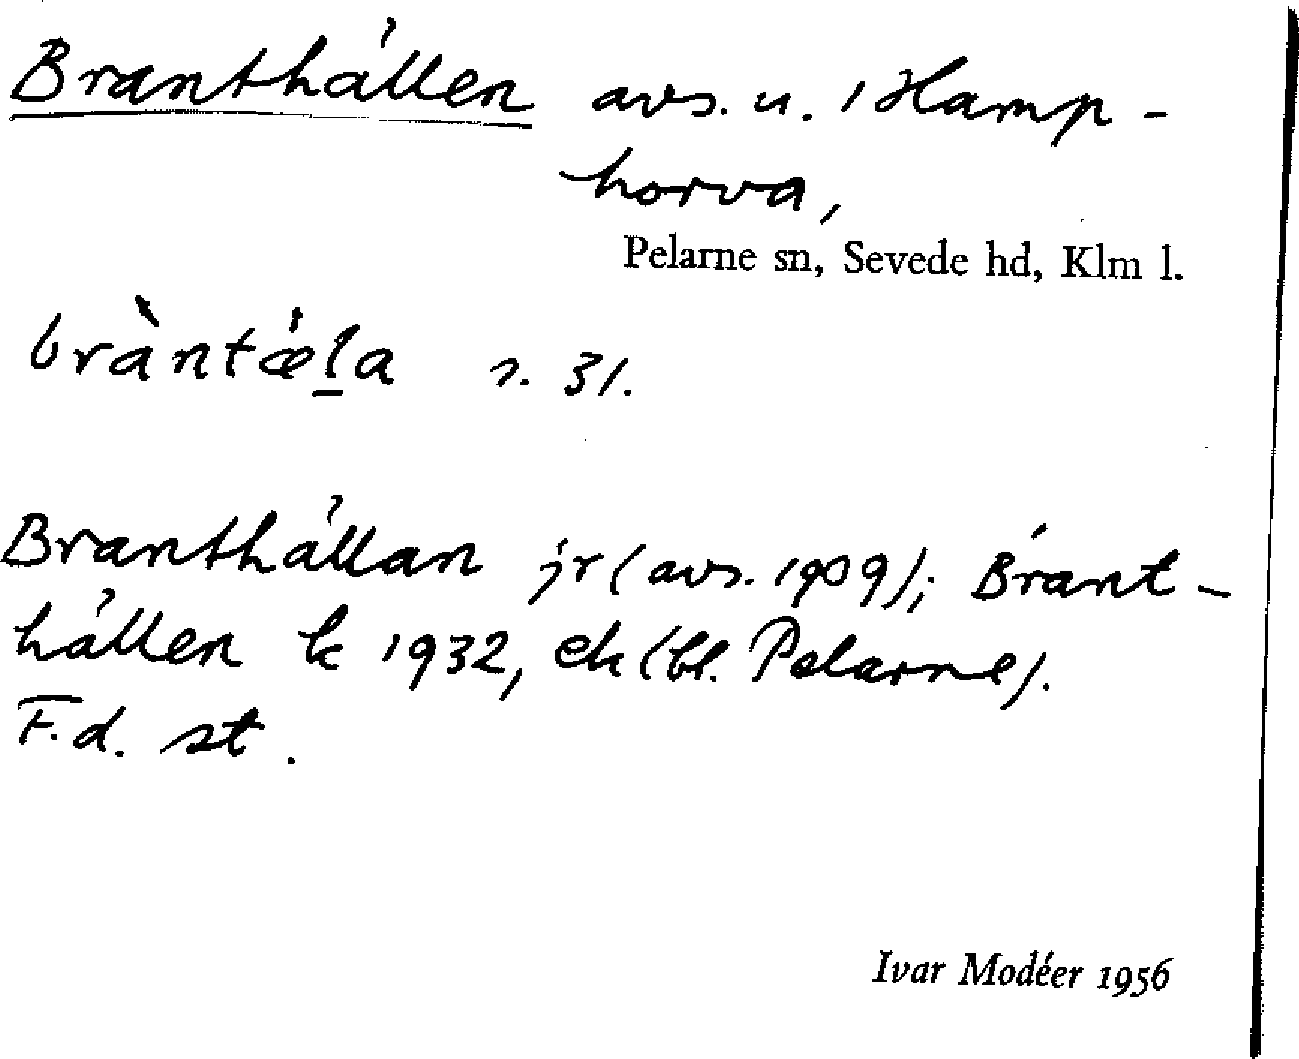 Branthällen avs. u. 1 Hamp-
horva,
Pelarne sn, Sevede hd, Klm l.
bràntǽl̲a s. 31.
Branthällan jr (avs. 1909); Brant-
hällen k 1932, ek (bl. Pelarne).
F.d. st.
Ivar Modéer 1956